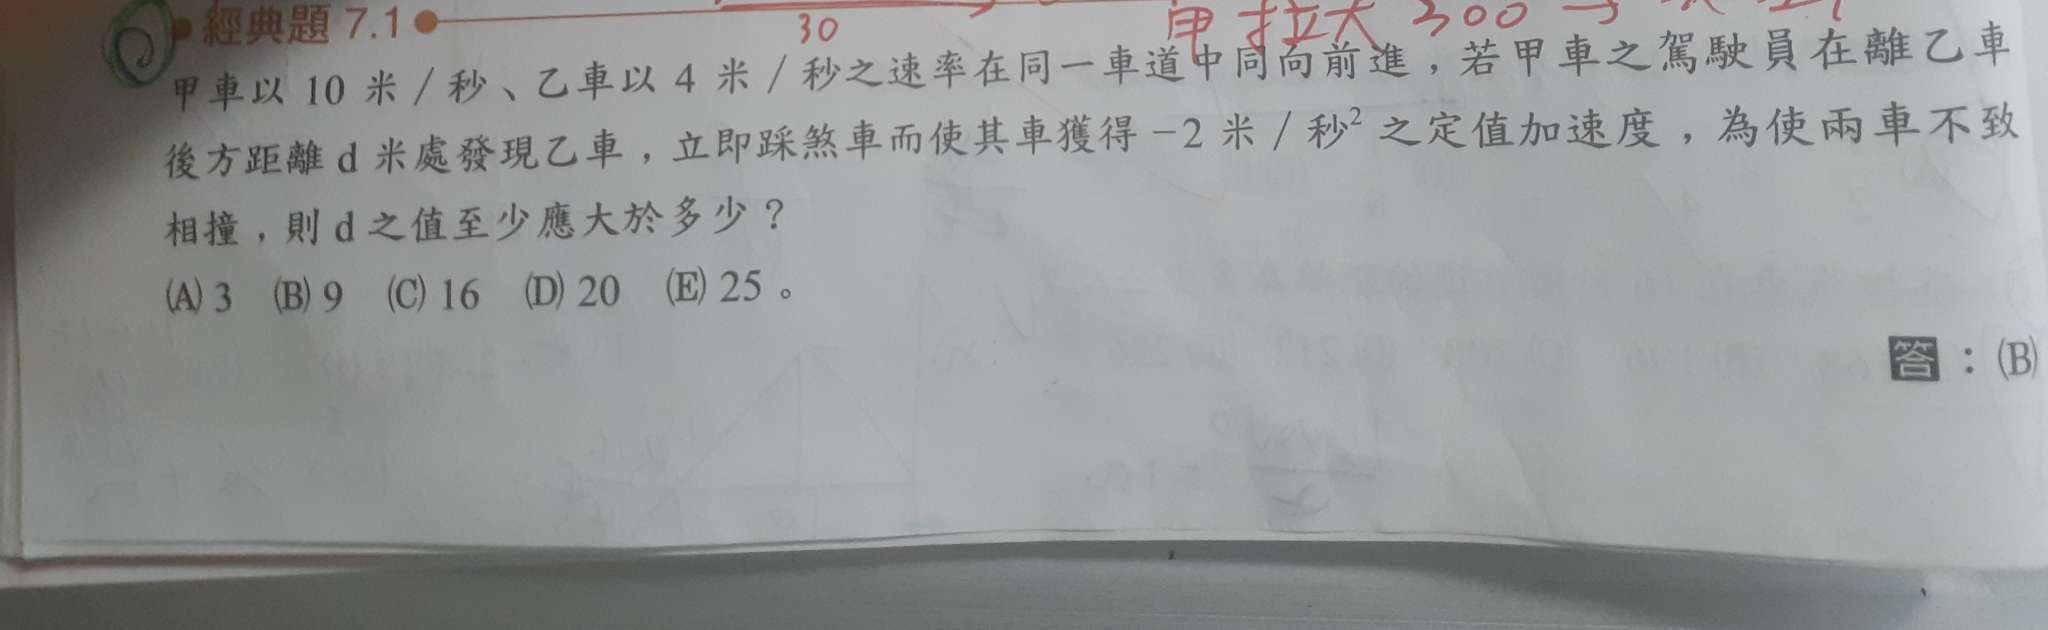 經典題 7.1
30
甲拉大 300
甲車以 10 米／秒、乙車以 4 米／秒之速率在同一車道中同向前進，若甲車之駕駛員在離乙車
後方距離 d 米處發現乙車，立即踩煞車而使其車獲得 −2 米／秒² 之定值加速度，為使兩車不致
相撞，則 d 之值至少應大於多少？
(A) 3 (B) 9 (C) 16 (D) 20 (E) 25。
答：(B)